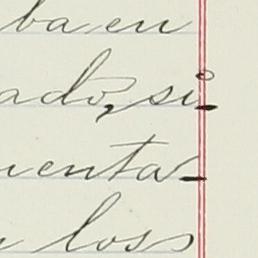 ba en
ado, si-
uenta-
loss